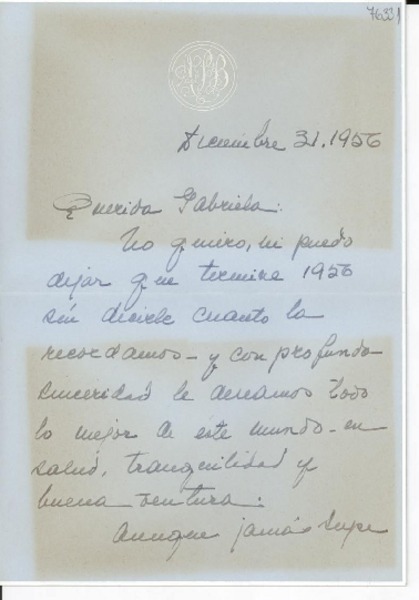 76331
Diciembre 31.1956
Querida Gabriela:
No quiero, ni puedo
dejar que termine 1956
sin decirle cuanto la
recordamos - y con profunda
sinceridad le deseamos todo
lo mejor de este mundo - en
salud, tranquilidad y
buena ventura.
Aunque jamás supe